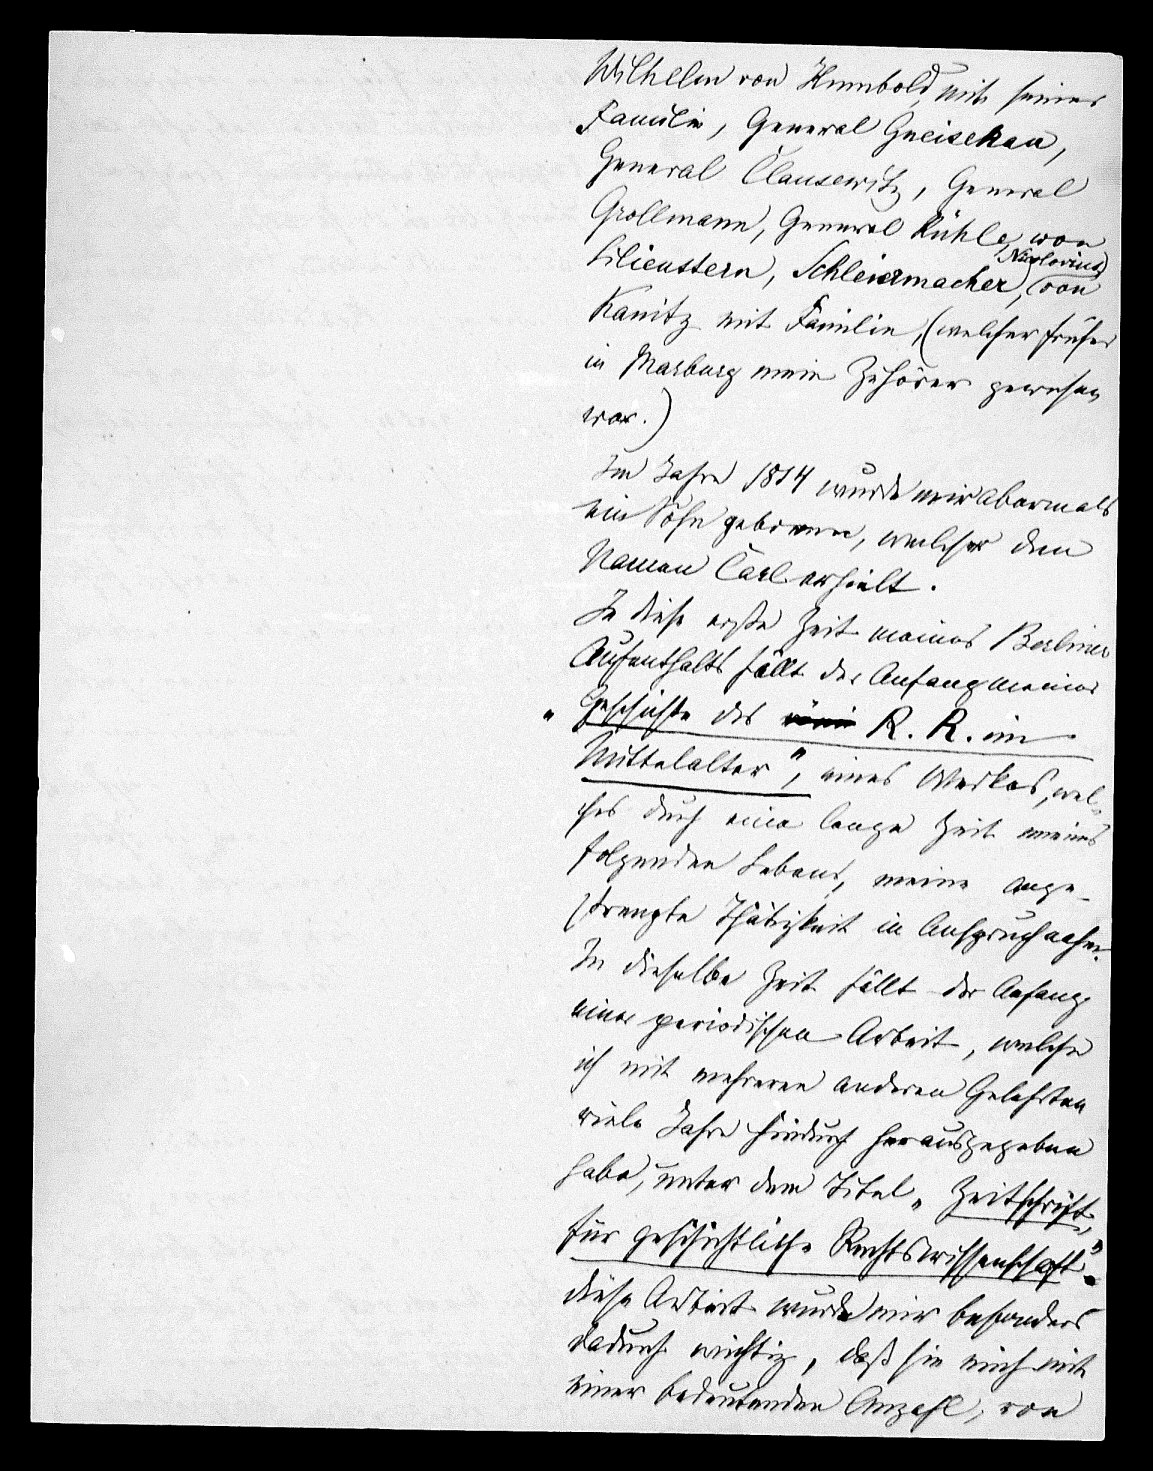 Wilhelm von Humbold, mit seiner
Familie, General Gneisenau,
General Clausewitz, General
Grollmann, General Rühle, von
Lilienstern, Schleiermacher, Nicolovius, von
Kanitz mit Familie, (welcher früher
in Marburg mein Zuhörer gewesen
war.)
Im Jahre 1814 wurde mir abermals
ein Sohn geboren, welcher den
Namen Carl erhielt.
In diese erste Zeit meines Berliner
Aufenthalts fällt der Anfang meiner
„Geschichte des R. R. im
Mittelalter“, eines Werkes, wel-
ches durch eine lange Zeit meines
folgenden Lebens, meine ange-
strengte Thätigkeit in Anspruch nahm.
In dieselbe Zeit fällt der Anfang
einer periodischen Arbeit, welche
ich mit mehreren anderen Gelehrten
viele Jahre hindurch herausgegeben
habe, unter dem Titel „Zeitschrift
für geschichtliche Rechtswissenschaft“.
diese Arbeit wurde mir besonders
dadurch wichtig, daß sie mich mit
einer bedeutenden Anzahl, von